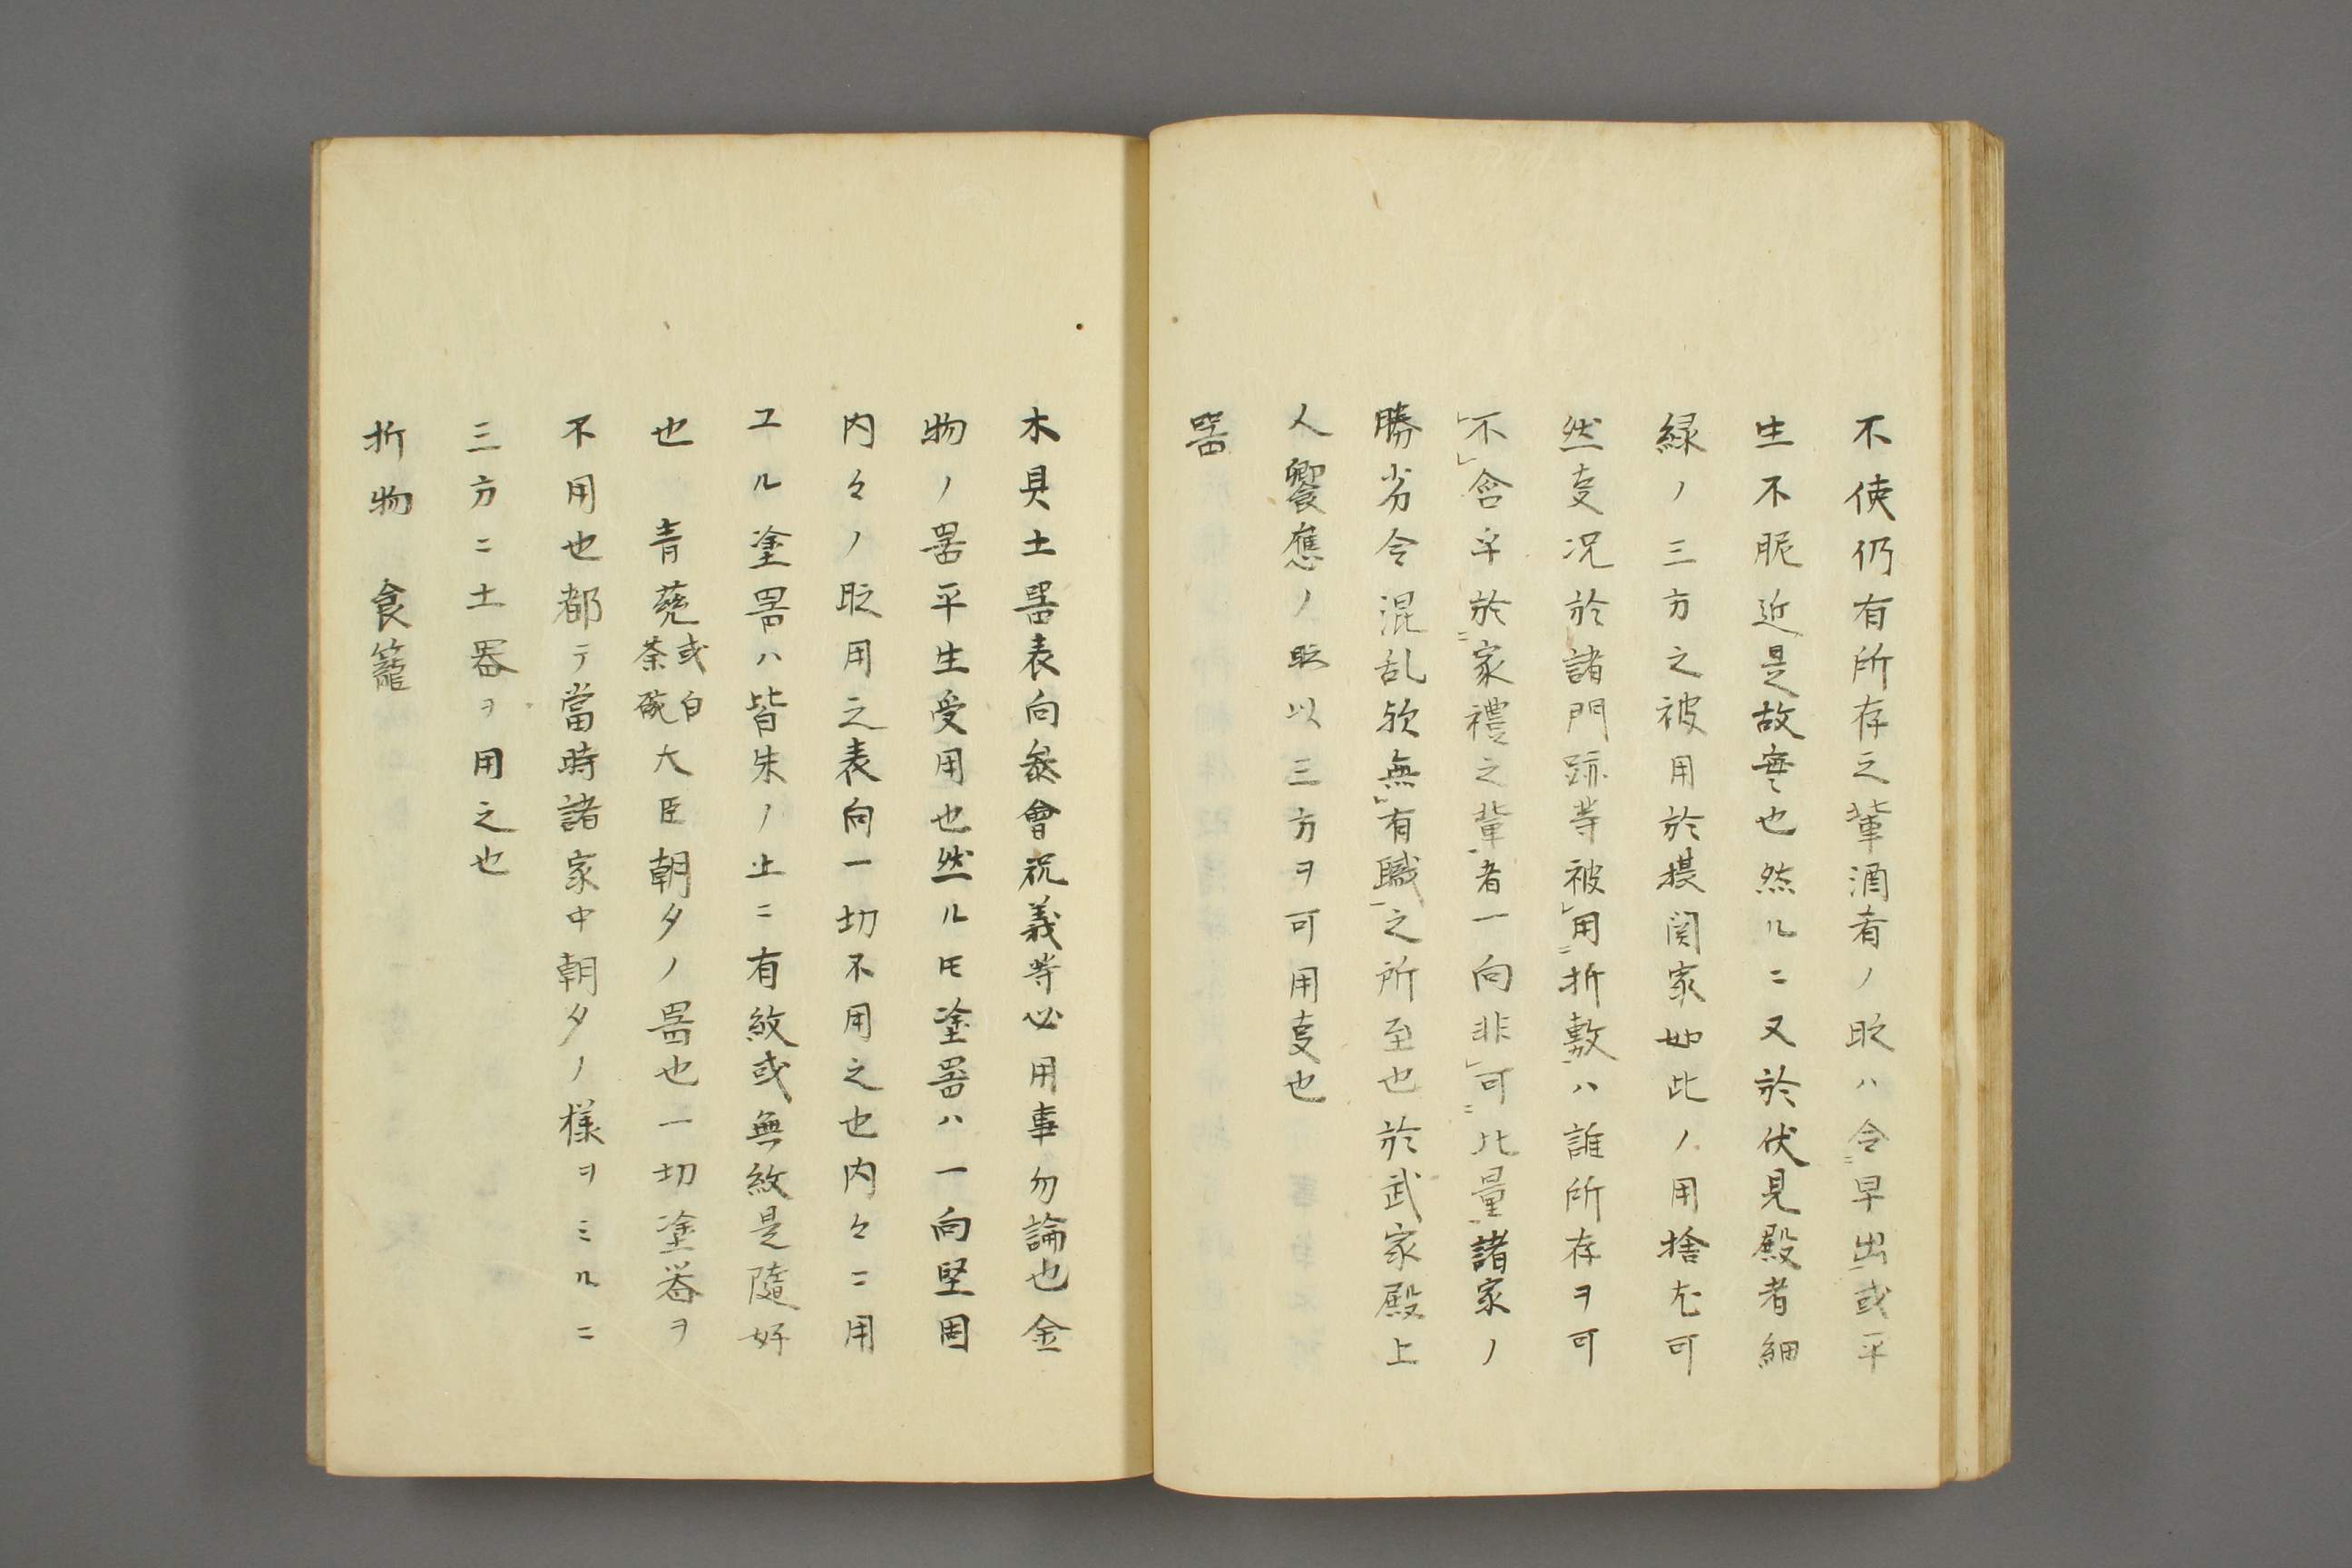 不使仍有所存之輩酒肴ノ時ハ令ニ早出一或平
生不昵近是故実也然ルニ又於伏見殿者細
緑ノ三方之被用於摂関家如此ノ用捨尤可
然支况於諸門跡等被レ用ニ折敷一ハ誰所存ヲ可
レ不レ含乎於ニ家禮之輩一者一向非レ可ニ比量一諸家ノ
勝劣令混乱欤無レ有職一之所至也於武家殿上
人饗應ノ時以三方ヲ可用支也
器
木具土器表向参會祝義等必用事勿論也金
物ノ器平生受用也然ルモ塗器ハ一向堅固
内々ノ時用之表向一切不用之也内々ニ用
ユル塗器ハ皆朱ノ上ニ有紋或無紋是隨好
也　青甆或白茶碗大臣朝夕ノ器也一切塗器ヲ
不用也都テ當時諸家中朝夕ノ様ヲミルニ
三方ニ土器ヲ用之也
折物　食籠